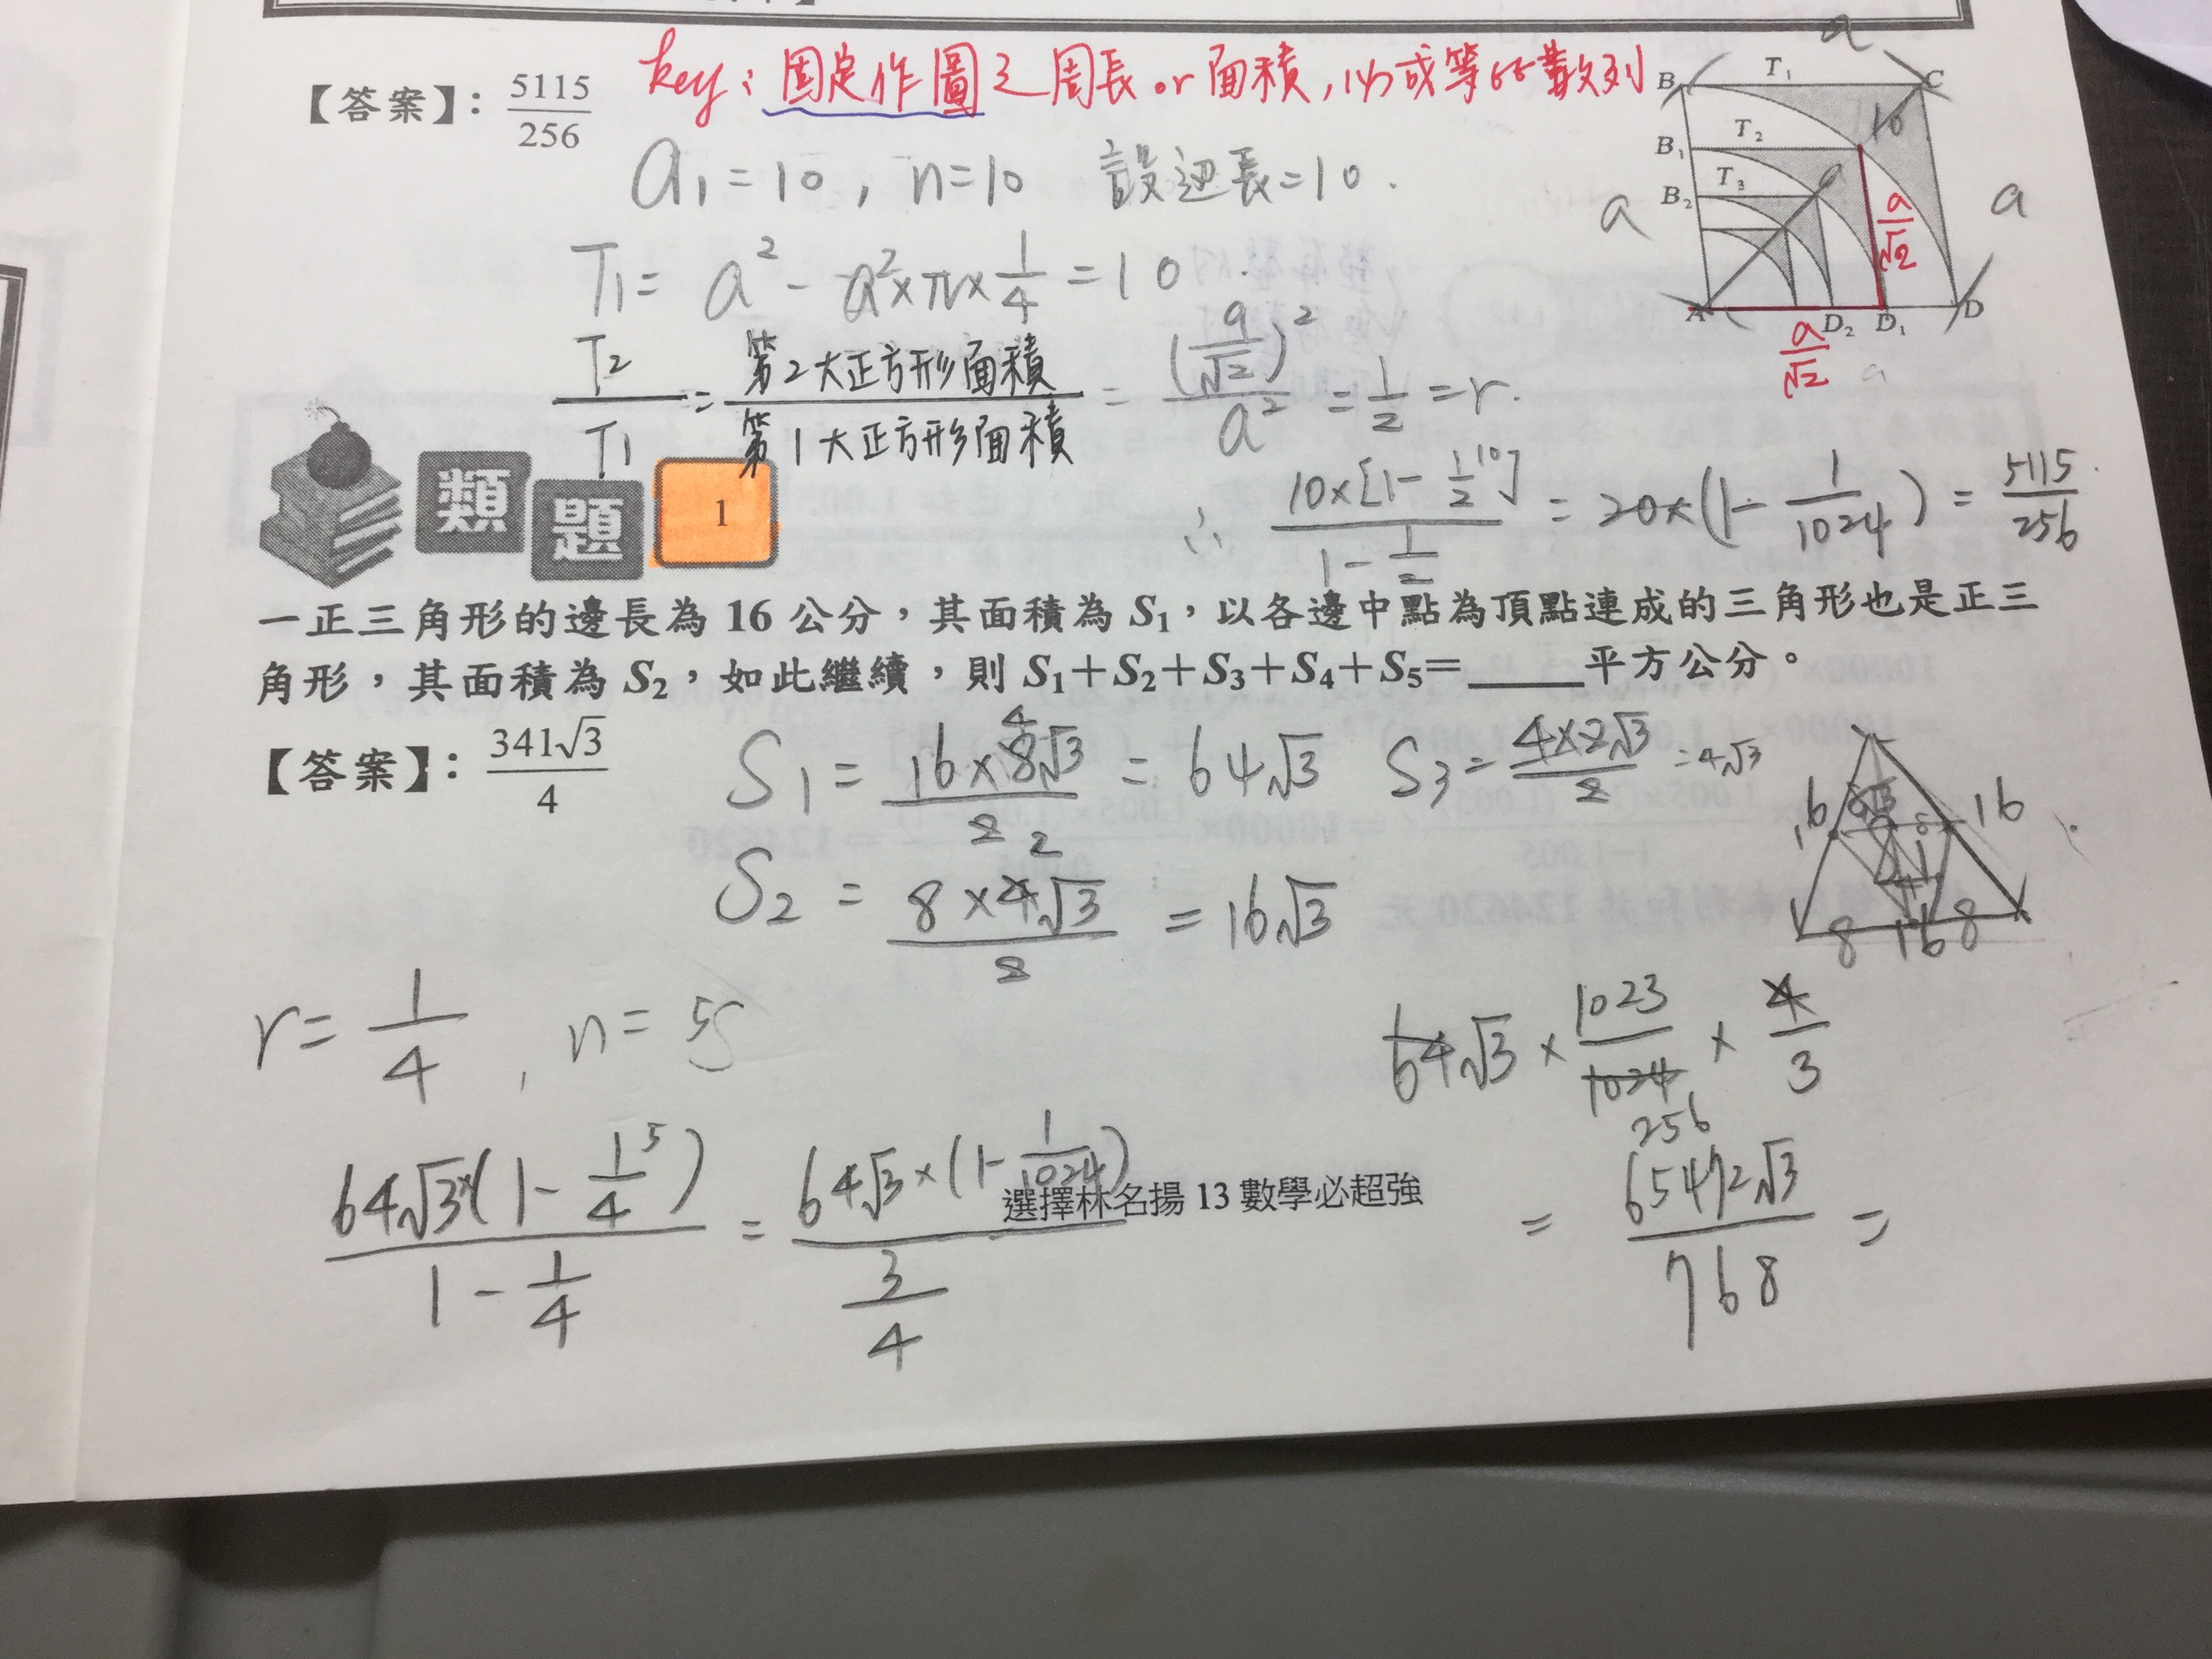 【答案】：5115/256
key：固定作圖之周長 or 面積，必成等比數列
a₁=10，n=10 設邊長=10.
T₁= a² - a²×π×1/4 =10
T₂/T₁ = 第2大正方形面積/第1大正方形面積 = (a/√2)²/a² = 1/2 = r.
∴ 10×[1-1/2¹⁰]/1-1/2 = 20×(1-1/1024) = 5115/256
a
B T₁ C
10
B₁ T₂
B₂ T₃
a
a
a/√2
A D₂ D₁ D
a/√2
a
類題 1
一正三角形的邊長為 16 公分，其面積為 S₁，以各邊中點為頂點連成的三角形也是正三
角形，其面積為 S₂，如此繼續，則 S₁+S₂+S₃+S₄+S₅=_____平方公分。
【答案】：341√3/4
S₁ = 16×8√3/2 = 64√3 S₃ = 4×2√3/2 = 4√3
4
S₂ = 8×4√3/2 = 16√3
2
16 16
8 16 8
r = 1/4 , n = 5
64√3 × 1023/1024 × 4/3
256
64√3×(1-1/4⁵)/1-1/4 = 64√3×(1-1/1024)/3/4
= 65472√3/768 =
選擇林名揚 13 數學必超強